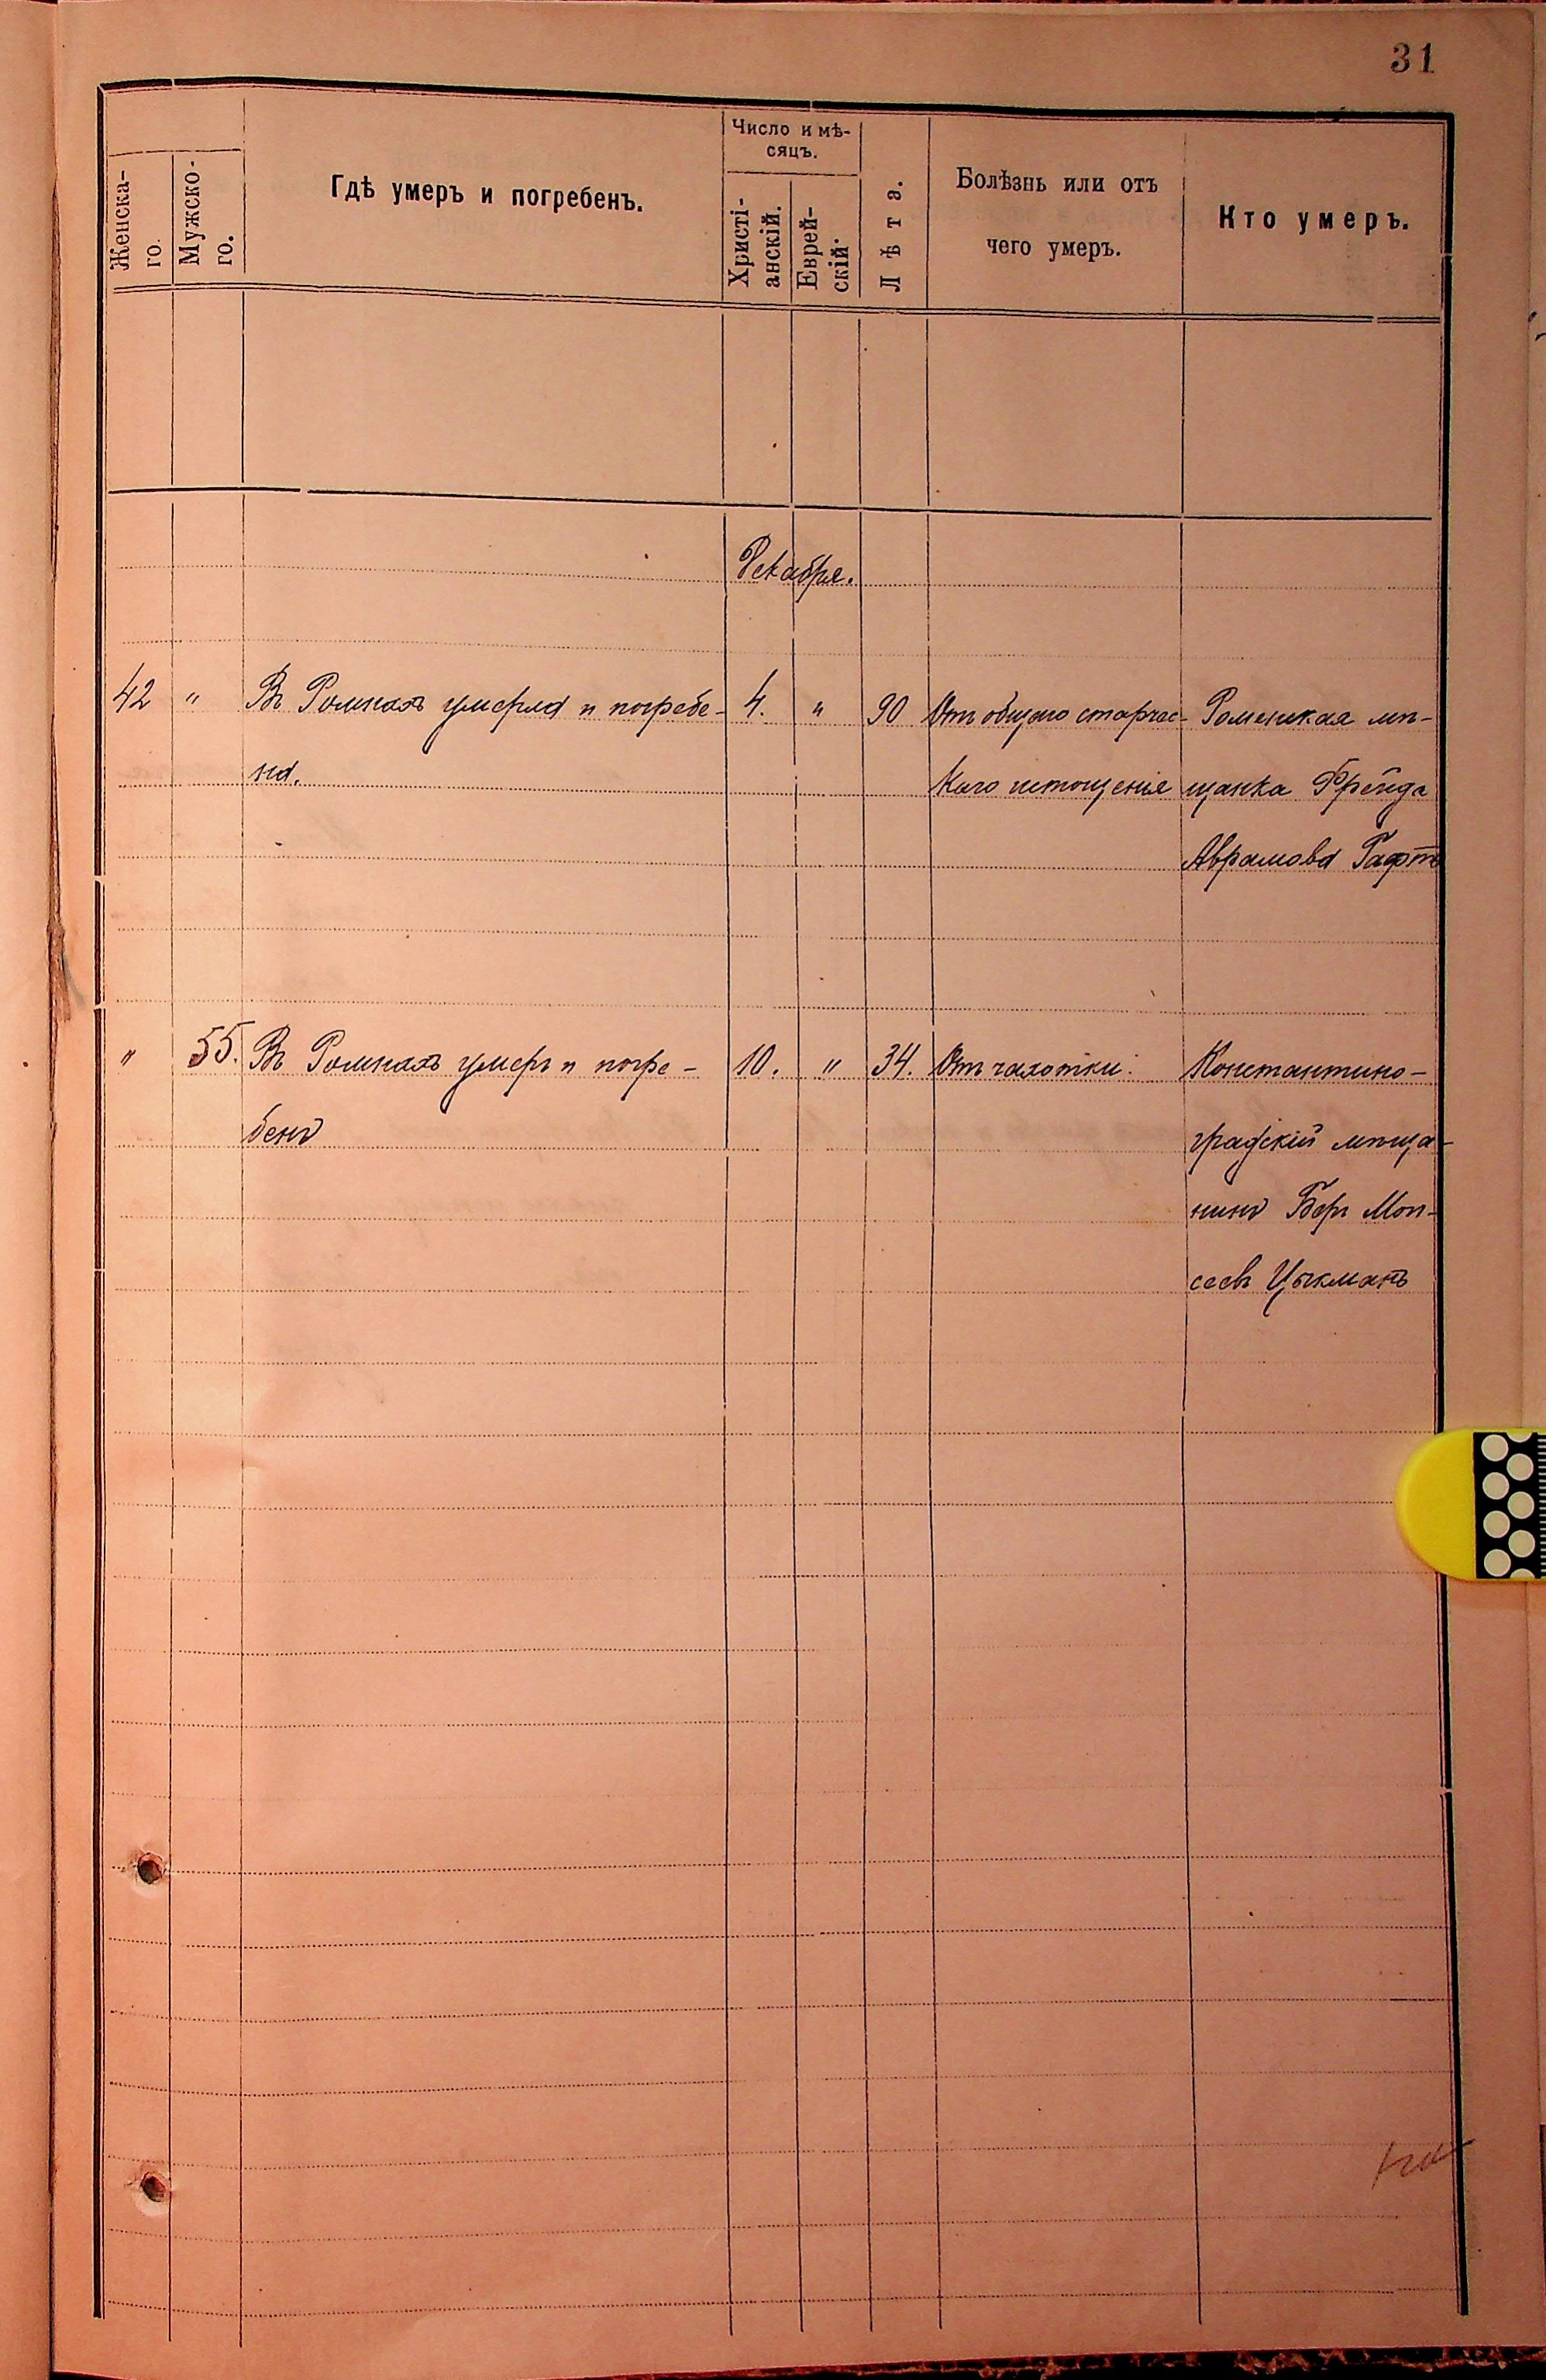 31
Женска-
го.
Мужско-
го.
Гдѣ умеръ и погребенъ.
Число и мѣ-
сяцъ.
Христі-
анскій.
Еврей-
скій.
Лѣта.
Болѣзнь или отъ
чего умеръ.
Кто умеръ.
Декабря.
42 " Въ Ромнахъ умерла и погребе- 4. " 90 Отъ общаго старчес- Роменская мѣ-
на. каго истощенія щанка Фрейда
Аврамова Гафтъ
" 55. Въ Ромнахъ умеръ и погре- 10. " 34. Отъ чахотки. Константино-
бенъ градскій мѣща-
нинъ Беръ Мои-
сеевъ Цыкманъ